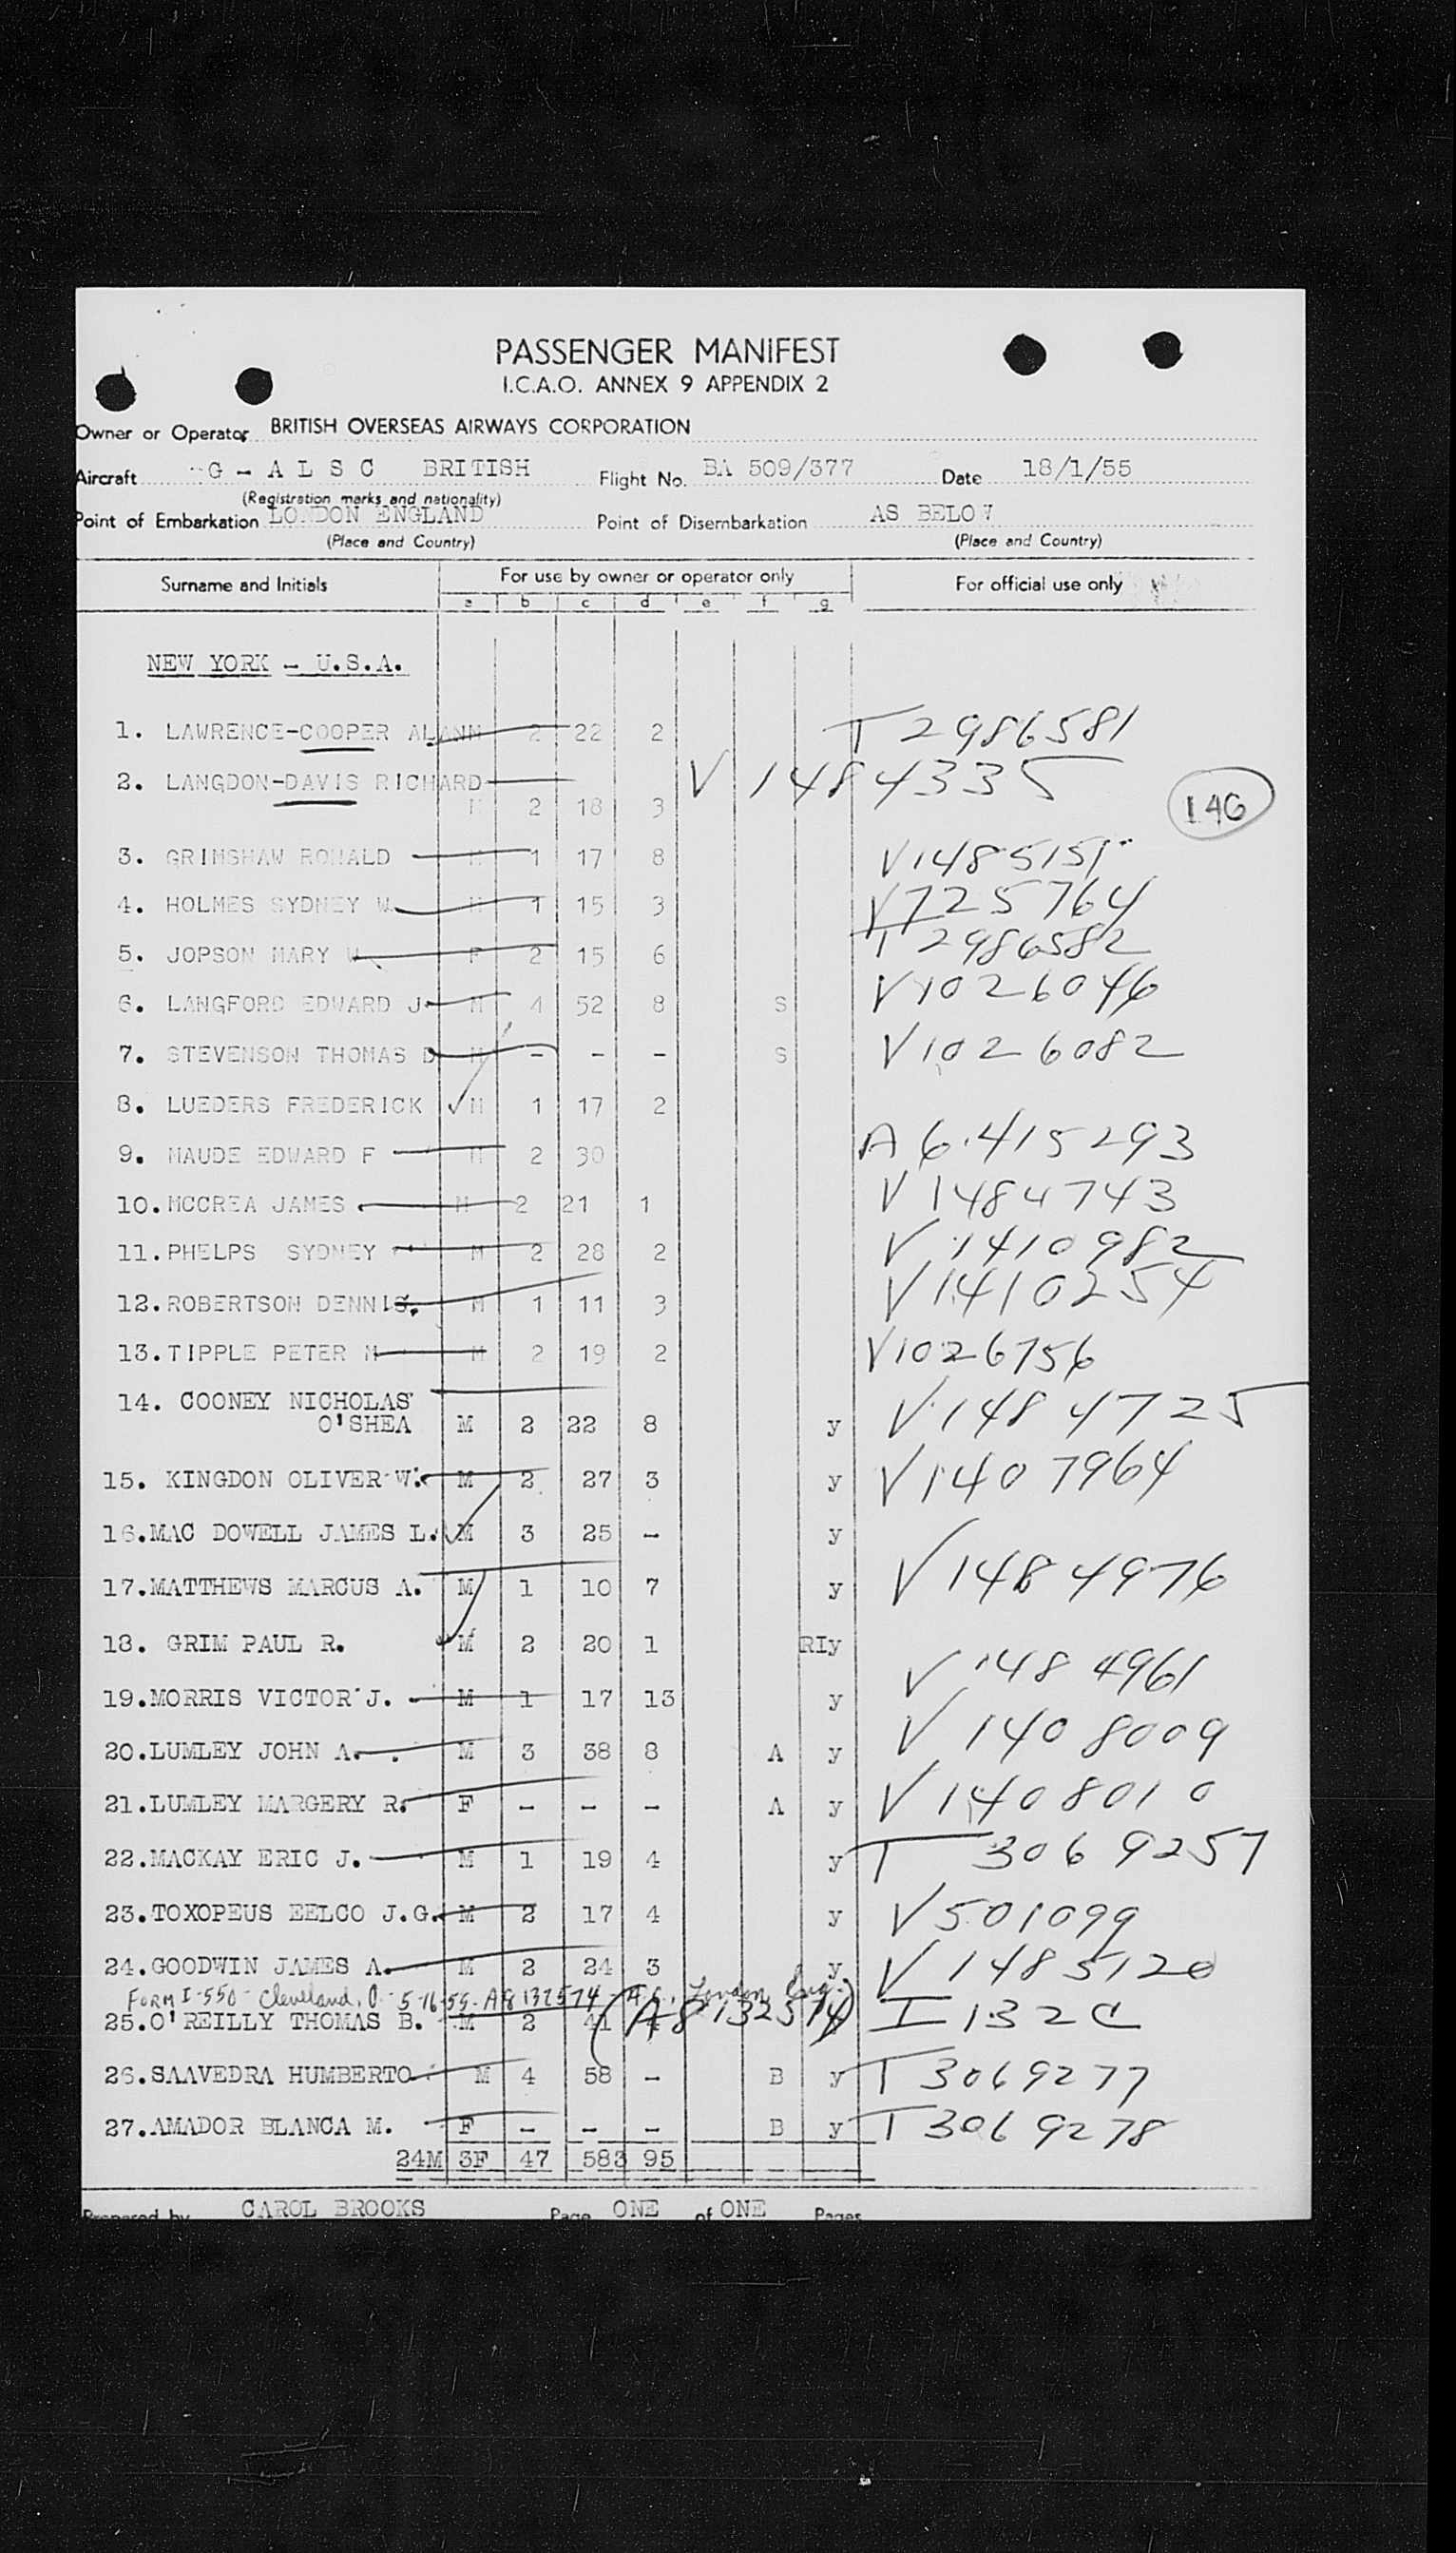 PASSENGER MANIFEST
I.C.A.O. ANNEX 9 APPENDIX 2
Owner or Operator BRITISH OVERSEAS AIRWAYS CORPORATION
Aircraft G - A L S C BRITISH Flight No. BA 509/377 Date 18/1/55
(Registration marks and nationality)
Point of Embarkation LONDON ENGLAND Point of Disembarkation AS BELOW
(Place and Country) (Place and Country)
Surname and Initials For use by owner or operator only For official use only
a b c d e f g
NEW YORK - U.S.A.
1. LAWRENCE-COOPER ALANN 2 22 2 T 2986581
2. LANGDON-DAVIS RICHARD V 1484335
M 2 18 3 146
3. GRIMSHAW RONALD M 1 17 8 V1485151
4. HOLMES SYDNEY W. M 1 15 3 V725764
5. JOPSON MARY W. F 2 15 6 T 2986582
6. LANGFORD EDWARD J. M 4 52 8 S V1026046
7. STEVENSON THOMAS D M - - - S V1026082
8. LUEDERS FREDERICK M 1 17 2
9. MAUDE EDWARD F M 2 30 A 6 415293
10. MCCREA JAMES M 2 21 1 V 1484743
11. PHELPS SYDNEY M 2 28 2 V 1410982
12. ROBERTSON DENNIS. M 1 11 3 V1410254
13. TIPPLE PETER M M 2 19 2 V1026756
14. COONEY NICHOLAS
O'SHEA M 2 22 8 y V 1484725
15. KINGDON OLIVER W. M 2 27 3 y V1407964
16. MAC DOWELL JAMES L. M 3 25 - y
17. MATTHEWS MARCUS A. M 1 10 7 y V 1484976
18. GRIM PAUL R. M 2 20 1 RIy
19. MORRIS VICTOR J. M 1 17 13 y V 1484961
20. LUMLEY JOHN A. M 3 38 8 A y V 1408009
21. LUMLEY MARGERY R. F - - - A y V 1408010
22. MACKAY ERIC J. M 1 19 4 y T 3069257
23. TOXOPEUS EELCO J.G. M 2 17 4 y V501099
24. GOODWIN JAMES A. M 2 24 3 y V 1485120
FORM I-550 - Cleveland, O. - 5-16-55 - A8132574 London, Eng.
25. O'REILLY THOMAS B. M 2 41 (A8132574) I 132C
26. SAAVEDRA HUMBERTO M 4 58 - B y T3069277
27. AMADOR BLANCA M. F - - - B y T3069278
24M 3F 47 583 95
Prepared by CAROL BROOKS Page ONE of ONE Pages